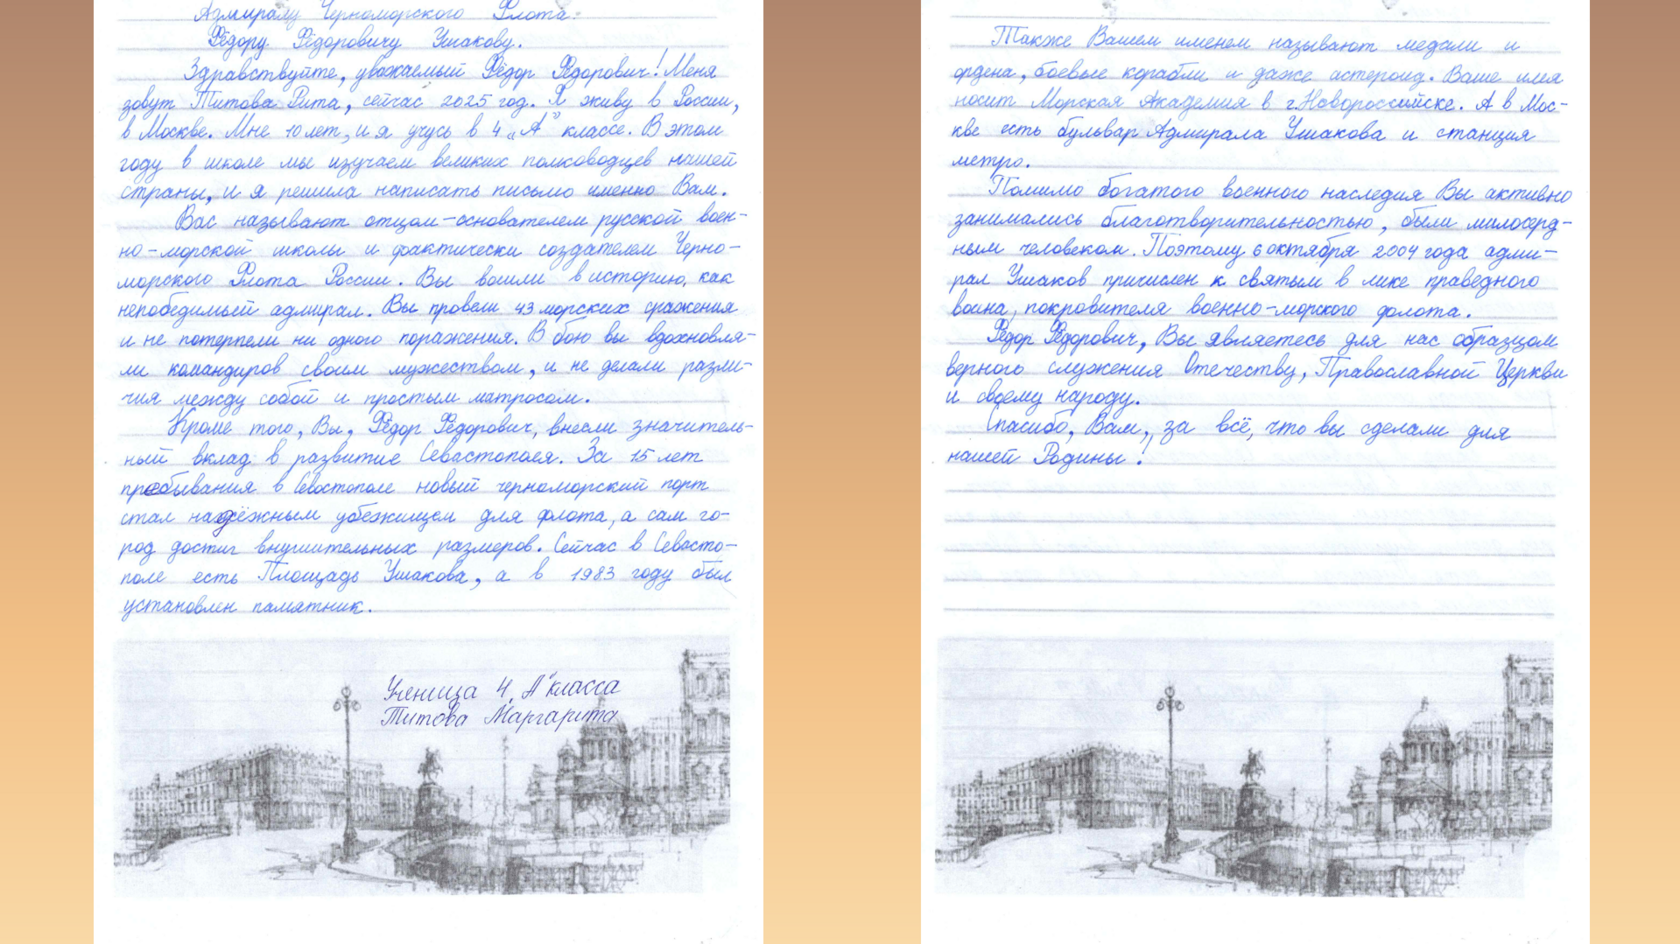 Адмиралу Черноморского Флота.
Фёдору Фёдоровичу Ушакову.
Здравствуйте, уважаемый Фёдор Фёдорович! Меня
зовут Титова Рита, сейчас 2025 год. Я живу в России,
в Москве. Мне 10 лет, и я учусь в 4 „А" классе. В этом
году в школе мы изучаем великих полководцев нашей
страны, и я решила написать письмо именно Вам.
Вас называют отцом-основателем русской воен-
но-морской школы и фактически создателем Черно-
морского Флота России. Вы вошли в историю, как
непобедимый адмирал. Вы провели 43 морских сражения
и не потерпели ни одного поражения. В бою вы вдохновля-
ли командиров своим мужеством, и не делали разли-
чия между собой и простым матросом.
Кроме того, Вы, Фёдор Фёдорович, внесли значитель-
ный вклад в развитие Севастополя. За 15 лет
пребывания в Севостополе новый черноморский порт
стал надёжным убежищем для флота, а сам го-
род достиг внушительных размеров. Сейчас в Севасто-
поле есть Площадь Ушакова, а в 1983 году был
установлен памятник.
Ученица 4 „А" класса
Титова Маргарита
Также Вашем именем называют медали и
ордена, боевые корабли и даже астероид. Ваше имя
носит Морская Академия в г.Новороссийске. А в Мос-
кве есть бульвар Адмирала Ушакова и станция
метро.
Помимо богатого военного наследия Вы активно
занимались благотворительностью, были милосерд-
ным человеком. Поэтому 6 октября 2004 года адми-
рал Ушаков причислен к святым в лике праведного
воина, покровителя военно-морского флота.
Фёдор Фёдорович, Вы являетесь для нас образцом
верного служения Отечеству, Православной Церкви
и своему народу.
Спасибо, Вам, за всё, что вы сделали для
нашей Родины!